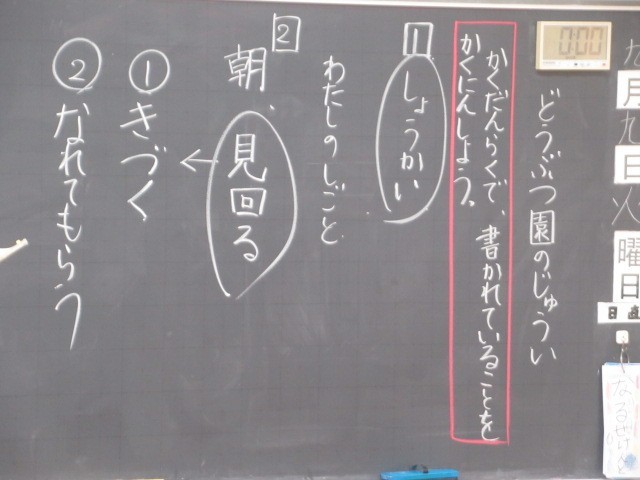 九月九日火曜日
日直
0:00
どうぶつ園のじゅうい
かくだんらくで、書かれていることを
かくにんしよう。
1 しょうかい
わたしのしごと
2 朝、見回る
↓
①きづく
②なれてもらう